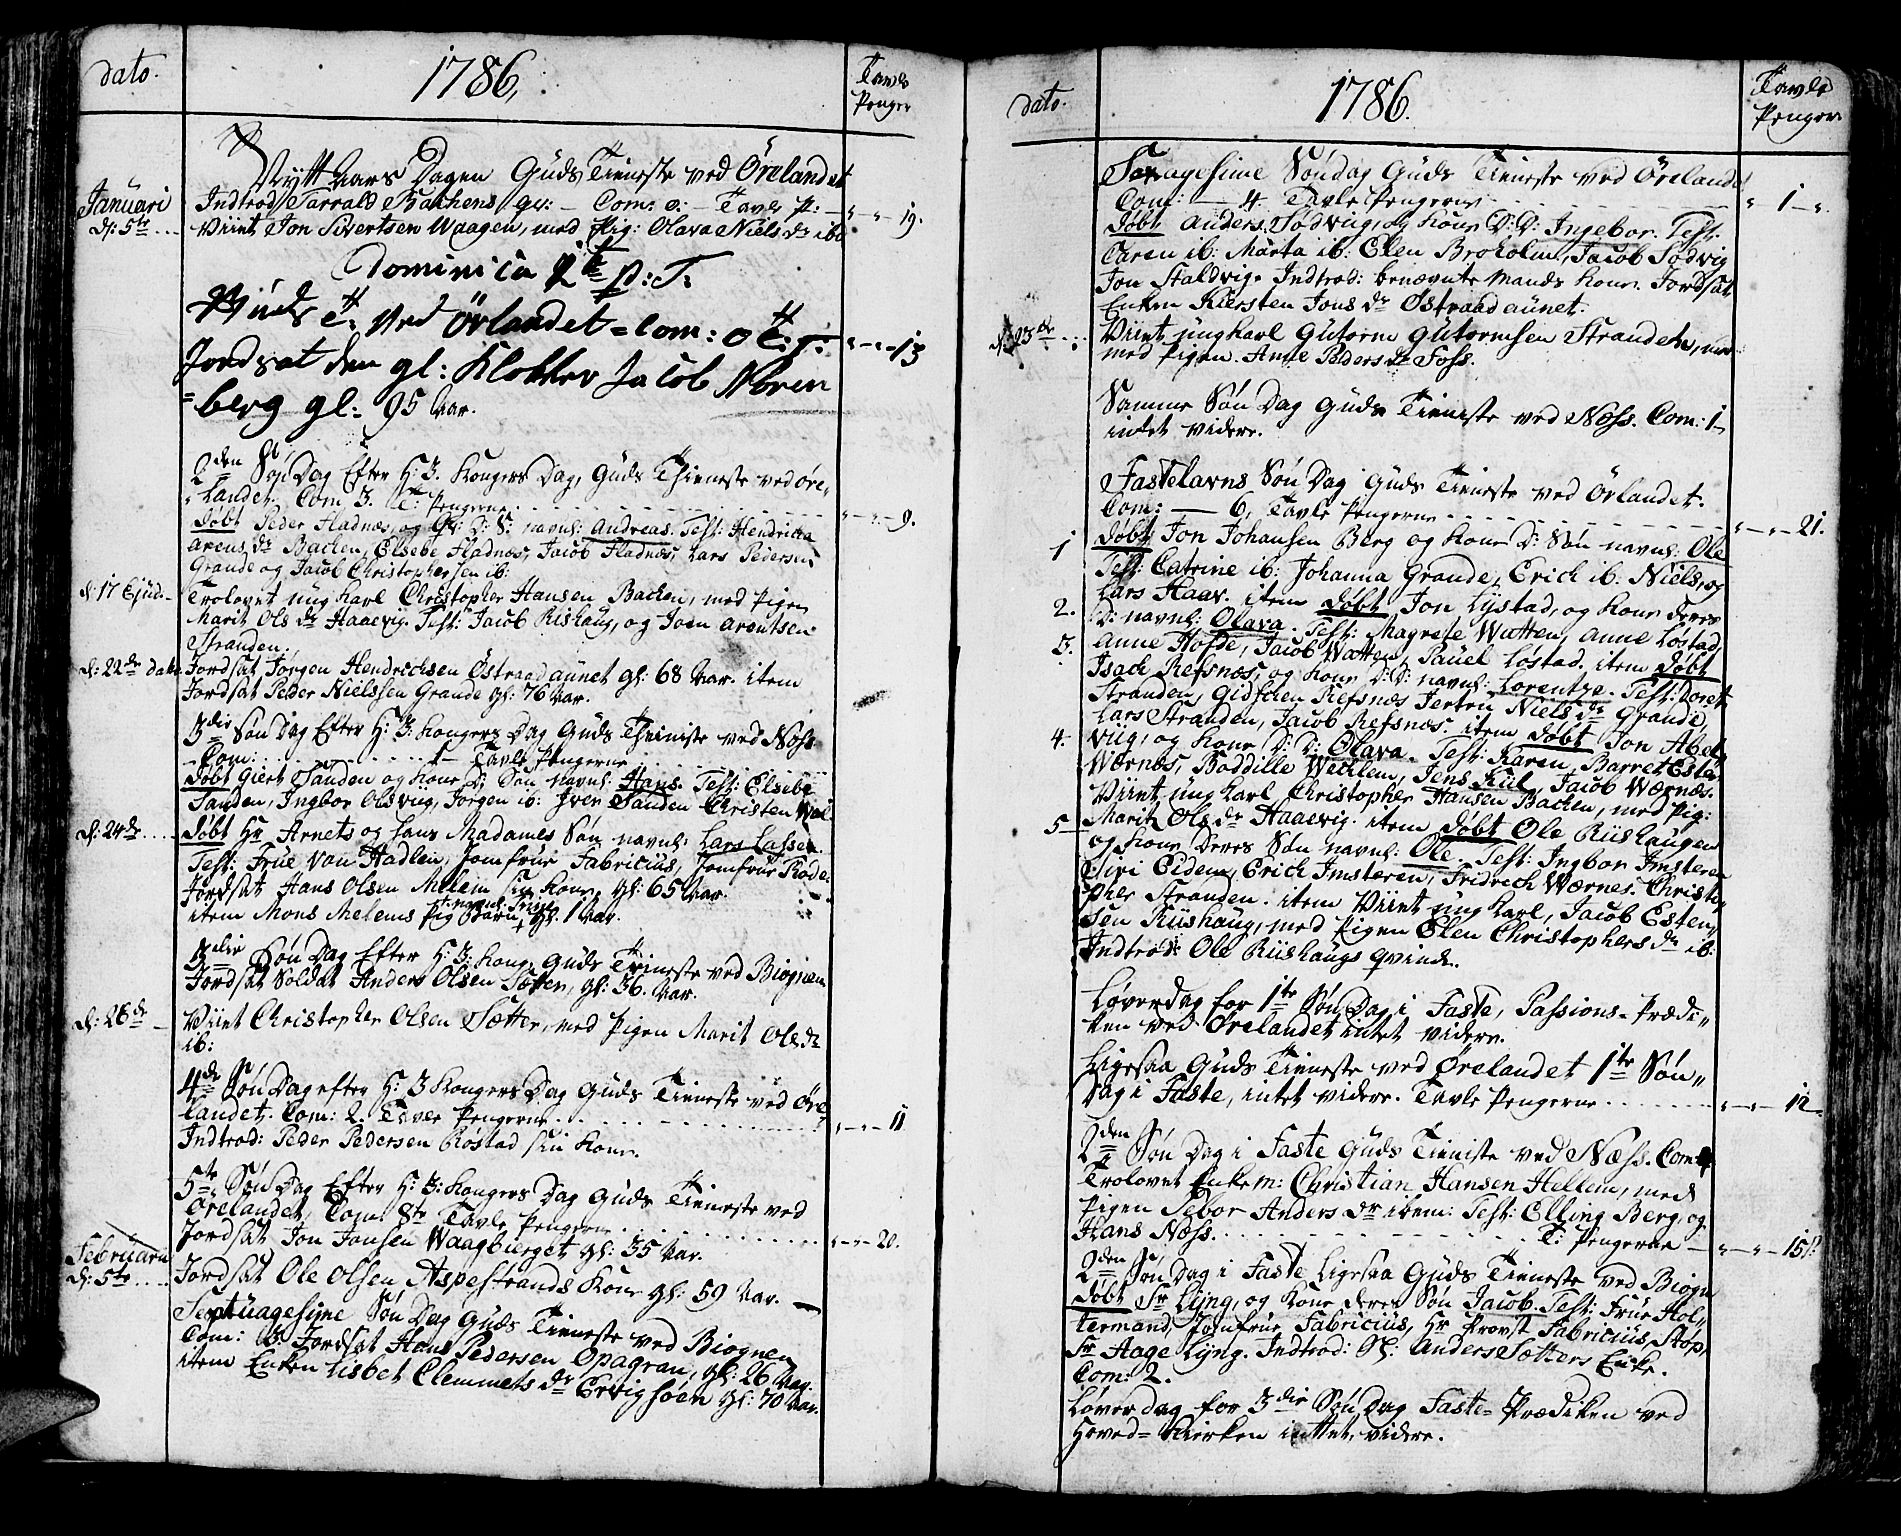 dato.
1786,
Tavle
Penger
Nytt Aars Dagen Guds Tieneste ved Örelandet
Januari
Indtrod: Tarrald Bachens qv: – Com: o: – Tavle P: – " – " – 19.
d: 5te .... Viint Jon Sivertsen Waagen, med Pig: Olava Niels dr ibd
Dominica 2te p: T.
Guds t: ved Örlandet = Com: o t: p: " – " – 13
Jordsat den gl: Klokker Jacob Noren
= berg gl: 95 Aar.
2den Søn Dag Efter H: 3. Kongers Dag, Guds Thieneste ved Öre,,
,, landet. Com 3. T: Pengerne ........ " – " – 9.
Døbt Peder Fladnæs, og Qv: D: S: navnl: Andreas. Test: Hendricka
Arens dr Bachen, Elsebe Fladnæs, Jacob Fladnæs, Lars Pedersen
Grande og Jacob Christophersen ib:
d: 17 Ejusd. – Trolovet ung Karl Christopher Hansen Bachen, med Pigen
Marit Ols dr Haaevig. Test: Jacob Rishaug, og Joen Arentsen
Stranden.
d: 22de dato Jordsat Jørgen Hendrichsen Østraadaunet gl: 68 Aar. item
Jordsat Peder Nielssen Grande gl: 76 Aar.
3die Søn Dag Efter H: 3. Kongers Dag Guds Thieniste ved Næss
Com: ........ 1 – Tavle Pengerne ........
Døbt Giert Sanden og Kone D: Søn navnl: Hans. Test: Elsebe
Sanden, Ingbor Olsviig, Jørgen ib: Iver Sanden Christen
d: 24de .... Døbt Hr Arnets og hans Madames Søn navnl: Lars Lassen.
Test: Frue Von Hadlen, Jomfrue Fabricius, Jomfrue Rode.
Jordsat Hans Olsen Melem sin Kone, gl: 65 Aar.
item Mons Melems Pig Barn, gl: 1 Aar.
3die Søn Dag Efter H: 3. Kong. Guds Tieneste ved Biognen
Jordsat Soldat Anders Olsen Sætter, gl: 36. Aar.
d: 26de – Viint Christopher Olsen Sætter, med Pigen Marit Ols dr
ib:
4de Søn Dag efter H: 3 Kongers Dag Guds Tieneste ved Öre
landet. Com: 2. Tavle Pengerne ........ " – " – 11
Indtrod: Peder Pedersen Røstad sin Kone.
5te Søn Dag Efter H: 3: Kongers Dag Guds Tieneste ved
Örelandet, Com: 8te Tavle Pengerne ........ " – " – 20.
Jordsat Jon Jonsen Waagbierget gl: 35 Aar.
Februarii
d: 5te .... Jordsat Ole Olsen Aspestrands Kone gl: 59 Aar. –
Septuagesime Søn Dag Guds Tieneste ved Biognen
Com: 3 Jordsat Hans Pedersen Opagran, gl: 26 Aar.
item Enken Lisbet Clemmets dr Ervigsøen gl: 70 Aar.
dato.
1786.
Tavle
Penger
Sexagesime Søndag Guds Tieneste ved Örelandet
Com: — 4. Tavle Pengerne ........ " 1 – ".
Døbt Anders Sødviig, og Kone D: D: Ingebor. Test:
Caren ib: Marta ib: Elen Brokolm, Jacob Sødvig
Jon Staldvig. Indtrod: benævnte Mands Kone. Jordsat
Enken Kiersten Jons dr Østraadaunet.
d: 23de .. Viint ung Karl Gutorm Gutormsen Stranden,
med Pigen. Anne Peders dr Foss.
Samme Søn Dag Guds Tieneste ved Næss. Com: 1 –
intet videre.
Fastelavns Søn Dag Guds Tieneste ved Örlandet.
Com: — 6, Tavle Pengerne ........ " – " – 21.
1 Døbt Jon Johansen Berg og Kone D: Søn navnl: Ole
Test: Catrine ib: Johanna Grande, Erich ib: Niels, og
Lars Haav. item Døbt Jon Lystad, og Kone deres
2. D: navnl: Olava. Test: Magrete Watten, Anne Løstad,
3. Anne Hofde, Jacob Watten, Pauel Løstad. item Døbt
Isach Refsnæs, og Kone D: D: navnl: Lorentze. Test: Doret
Stranden, Gidschen Refsnæs Jerten Niels dr Grande,
Lars Stranden, Jacob Refsnæs. item Døbt Jon Abel
4. viig, og Kone D: D: Olava. Test: Karen, Barret Esten
Wærnæs, Boddille Wecklem, Jens Kiil, Jacob Wærnæs.
Viint ung Karl Christopher Hansen Bachen, med Pig:
Marit Ols dr Haaevig. item Døbt Ole Riishaugen
5 – og Kone deres Søn navnl: Ole. Test: Ingbor Imsteren
Siri Eidem, Erich Imsteren, Fridrich Wærnes. Christo,,
pher Stranden. item Viint ung Karl, Jacob Esten,,
sen Riishaug, med Pigen Elen Christophers dr ib:
Indtrod: Ole Riishaugs qvinde.
Løverdag for 1te Søn Dag i Faste, Passions-Prædi,,
ken ved Ørelandet intet videre.
Ligesaa Guds Tieneste ved Ørelandet 1te Søn,,
Dag i Faste, intet videre. Tavle Pengerne ........ " – " – 12.
2den Søn Dag i Faste Guds Tieniste ved Næss. Com:
Trolovet Enkem: Christian Hansen Hellem, med
Pigen Sebor Anders dr ibem: Test: Elling Berg, og
Hans Næss. ........ T: Pengerne – " – " – 15 s.
2den Søn Dag i Faste Ligesaa Guds Tieneste ved Biogn
Døbt Sr Lyng, og Kone deres Søn Jacob. Test: Frue Hol,,
termand, Jomfrue Fabricius, Hr Provst Fabricius, Støp,
Sr Hage Lyng. Indtrod: Sl: Anders Sætters Enke.
Com: 2.
Løverdag for 3die Søn Dag Faste-Prædiken ved
Hoved-Kierken intet videre.